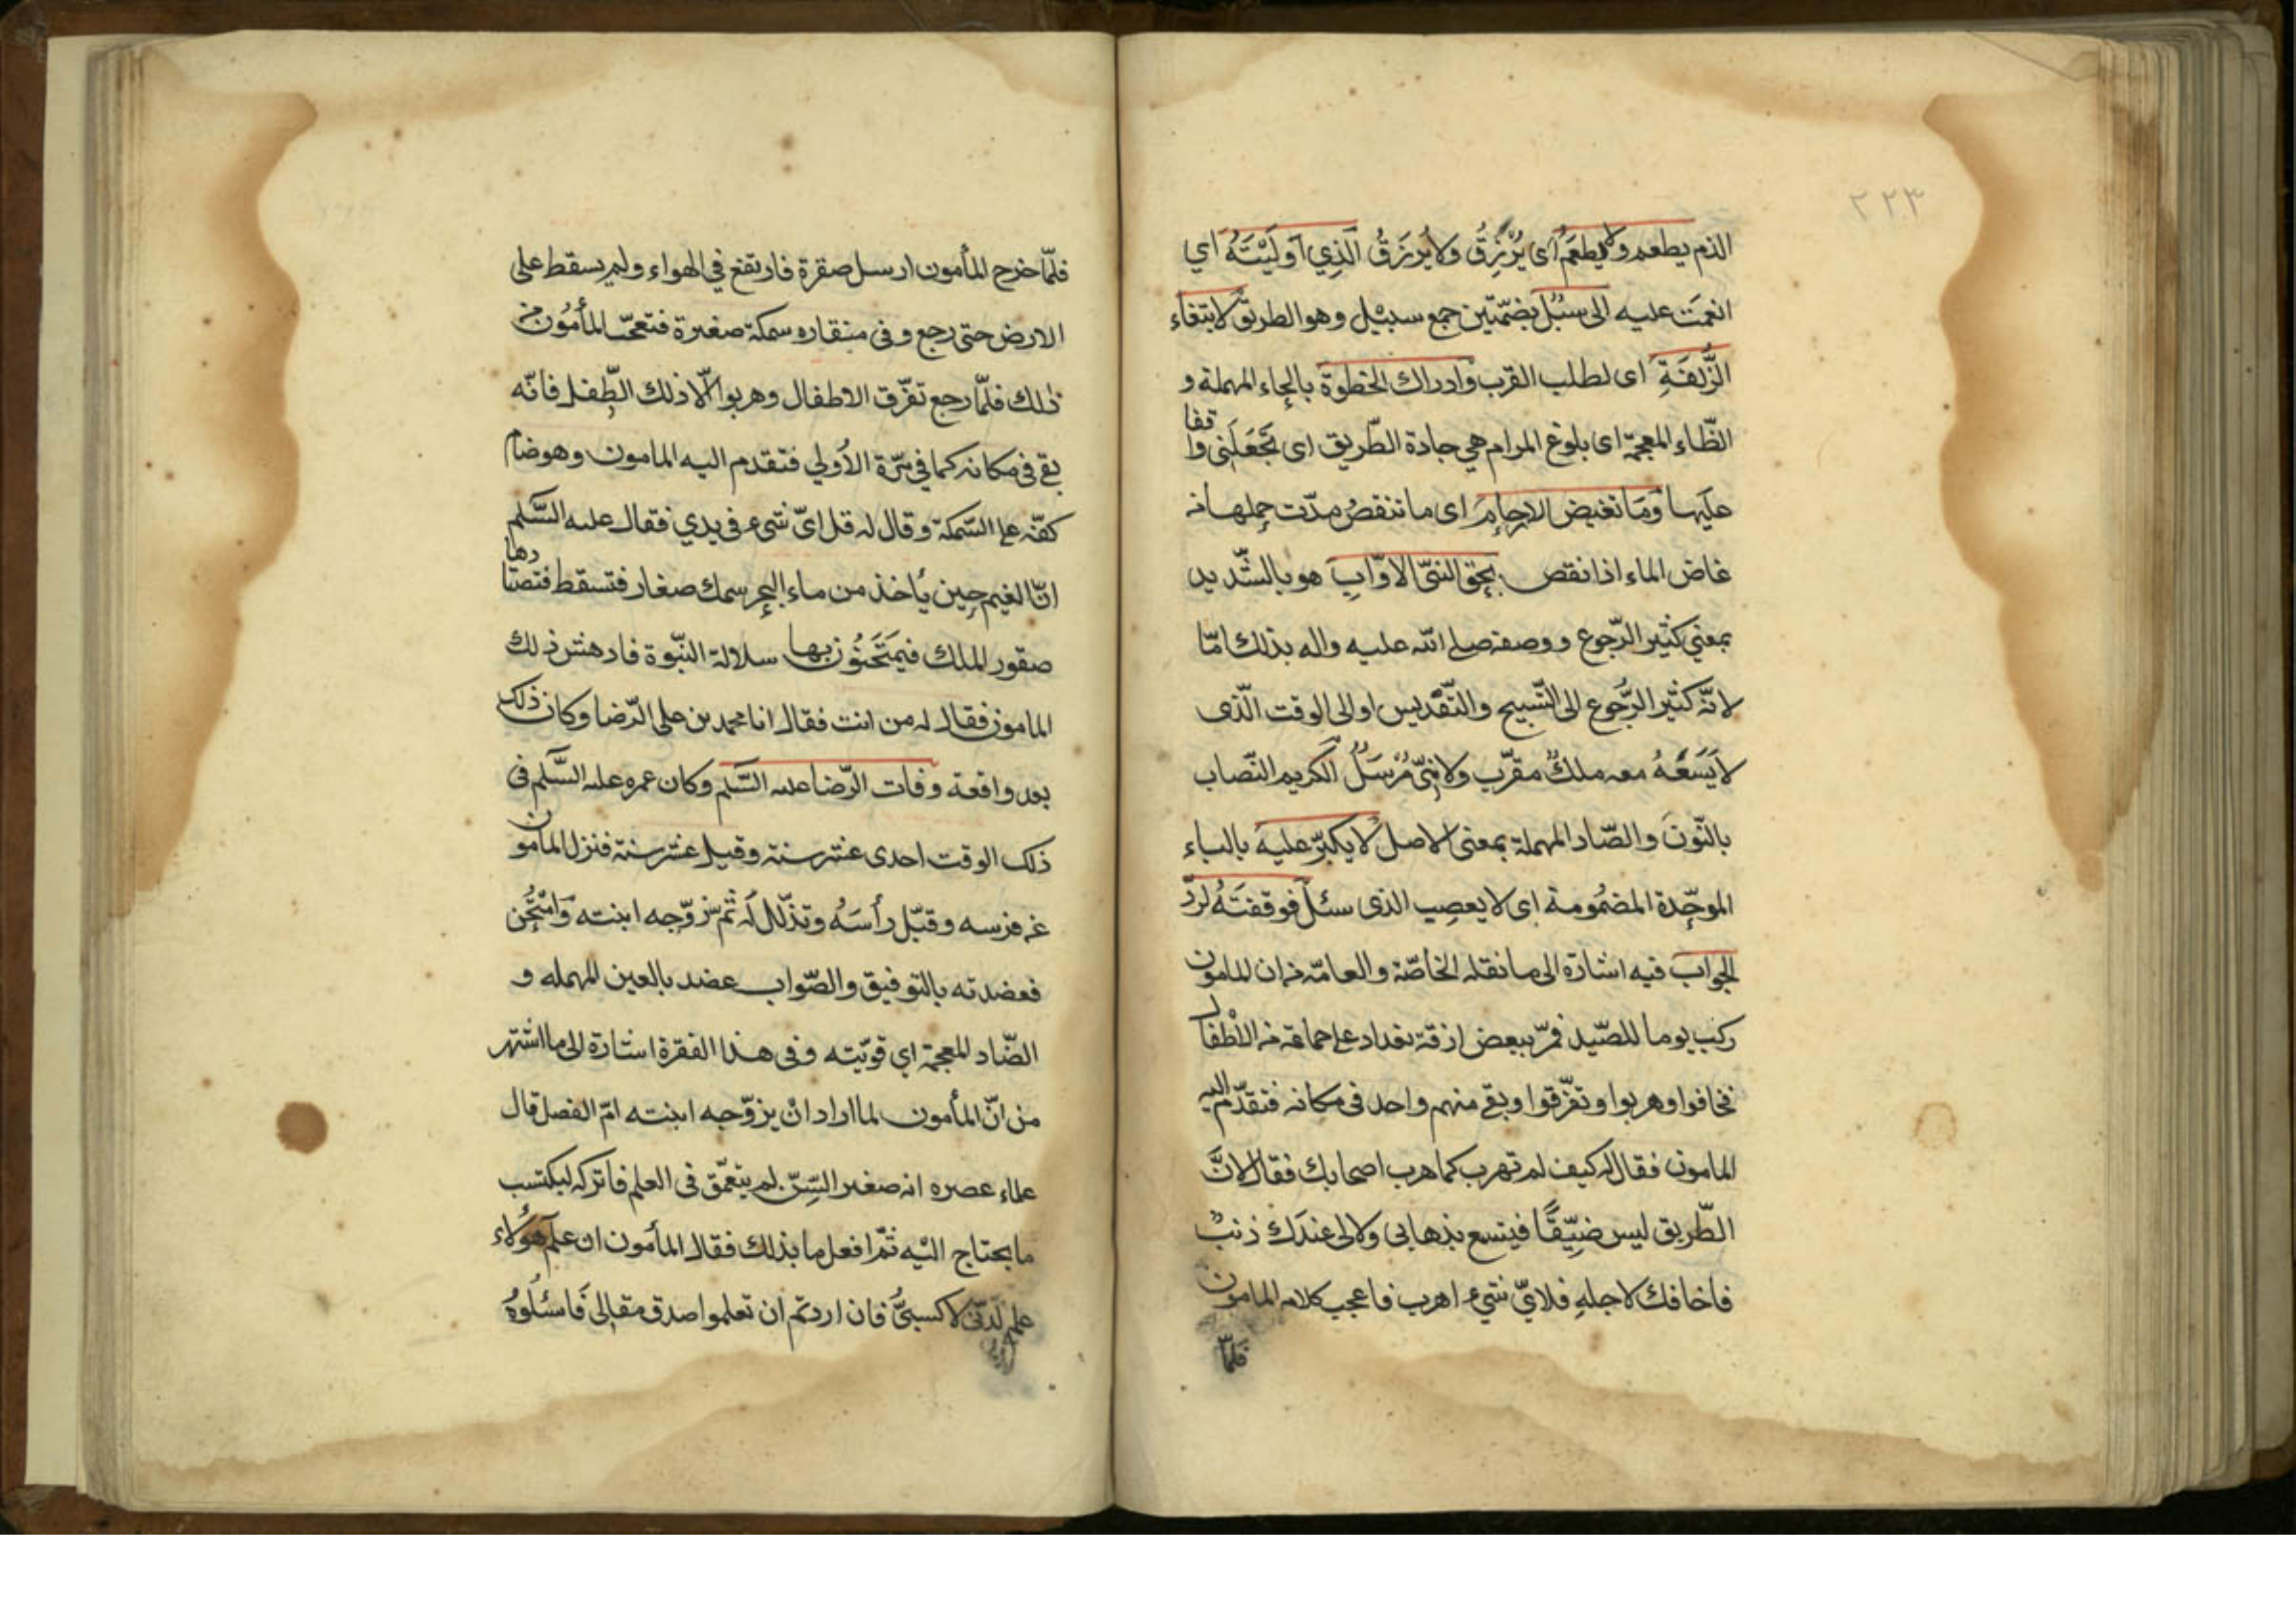 ٢٢٣
الذم يطعم ولا يطعم اى يُرْزِقُ ولا يُرْزَقُ الَّذِي اَولَيْتَهُ اي
انعمَتَ عليه الى سُبُلٍ بضمّتين جمع سبيل وهو الطريق لابتغاء
الزُّلفَةِ اى لطلب القرب وادراك الحظوة بالحاء المهملة و
الظّاء المعجمة اى بلوغ المرام هي جادة الطّريق اى تَجعَلَنى واقفا
عليها وَمَا تغيض الارحام اى ما تنقصُ مدّت حملها نه
غاض الماء اذا نقص بحق النبيّ الاوّابِ هو بالتّشديد
بمعنى كثير الرّجوع ووصفه صلى الله عليه واله بذلك امّا
لانّه كثير الرُّجوع الى التّسبيح والتّقديس او الى الوقت الّذى
لاَيَسَعُهُ معه ملكٌ مقرّب ولا نبىّ مُرسَلٌ الكريم النّصاب
بالنّون والصّاد المهملة بمعنى الاصل لا يكبرُ عليه بالباء
الموحّدة المضمُومة اى لا يعصب الذى سئل فوقفتَهُ لردّ
الجواب فيه اشارة الى ما نقله الخاصّة والعامّة من ان المامون
ركب يوما للصّيد فمرّ ببعض ازقة بغداد على جماعة من الاطفال
فخافوا وهربوا وتفرّقوا وبقى منهم واحد فى مكانه فتقدّم اليه
المامون فقال له كيف لم تهرب كما هرب اصحابك فقال لانَّ
الطّريق ليس ضيّقًا فيتسع بذهابى ولا لى عندَك ذنبٌ
فاخافك لاجلهِ فلايّ شيء اهرب فاعجب كلامه المامون
فلمّا
فلمّا خرج المأمون ارسل صقرة فارتفع في الهواء ولم يسقط على
الارض حتى رجع وفى منقاره سمكة صغيرة فتعجّب المأمُون من
ذلك فلمّا رجع تفرّق الاطفال وهربوا الّا ذلك الطّفل فانّه
بقى فى مكانه كما في مرّة الاُولي فتقدم اليه المامون وهو ضامّ
كفّه على السّمكة وقال له قل اىّ شيء فى يدي فقال عليه السَّلم
انّ الغيم حين يأخذ من ماء البحر سمك صغار فتسقط فتصطادها
صقور الملك فيَمتَحنُون بها سلالة النّبوة فادهش ذلك
المامون فقال له من انت فقال انا محمد بن على الرّضا وكان ذلك
بعد واقعة وفات الرّضا عليه السَّلم وكان عمره عليه السَّلم فى
ذلك الوقت احدى عشر سنة وقيل عشر سنة فنزل المأمون
عن فرسه وقبّل رأسَهُ وتذلّل لَه ثم زوّجه ابنته وَامْتُحِن
فعضدته بالتوفيق والصّواب عضد بالعين المهمله و
الضّاد المعجمة اي قوّيته وفى هذا الفقرة اشارة الى ما اشتهر
من انّ المأمون لما اراد انْ يزوّجه ابنته امّ الفضل قال
علماء عصره انه صغير السِّنّ لم يتعمّق فى العلم فاتركه ليكتسب
ما يحتاج اليْه ثمّ افعل ما بذلك فقال المأمون ان علم هؤلاء
علم لَدنّى لا كسبىٌّ فان اردتم ان تعلموا صدق مقالى فَاسئلُوهُ